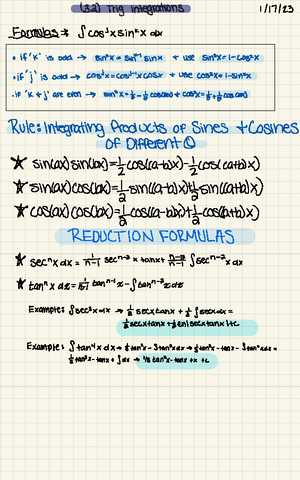 (3.2) Trig Integrations
1/17/23
Formulas → ∫cos^j x sin^k x dx
• if 'k' is odd → sin^k x = sin^(k-1) x sin x + use sin²x = 1-cos²x
• if 'j' is odd → cos^j x = cos^(j-1) x cos x + use cos²x = 1-sin²x
• if 'k + j' are even → sin²x = 1/2 - 1/2 cos(2x) + cos²x = 1/2 + 1/2 cos(2x)
Rule: Integrating Products of Sines + Cosines
of Different
★ sin(ax)sin(bx) = 1/2 cos((a-b)x) - 1/2 cos((a+b)x)
★ sin(ax)cos(bx) = 1/2 sin((a-b)x) + 1/2 sin((a+b)x)
★ cos(ax)cos(bx) = 1/2 cos((a-b)x) + 1/2 cos((a+b)x)
REDUCTION FORMULAS
★ sec^n x dx = 1/(n-1) sec^(n-2) x tan x + (n-2)/(n-1) ∫sec^(n-2) x dx
★ tan^n x dx = 1/(n-1) tan^(n-1) x - ∫tan^(n-2) x dx
Example: ∫sec³x dx → 1/2 sec x tan x + 1/2 ∫sec x dx =
1/2 sec x tan x + 1/2 ln|sec x tan x| + c
Example: ∫tan⁴x dx → 1/3 tan³x - ∫tan²x dx → 1/3 tan³x - tan x - ∫tan⁰x dx =
1/3 tan³x - tan x + ∫dx → 1/3 tan³x - tan x + x + c